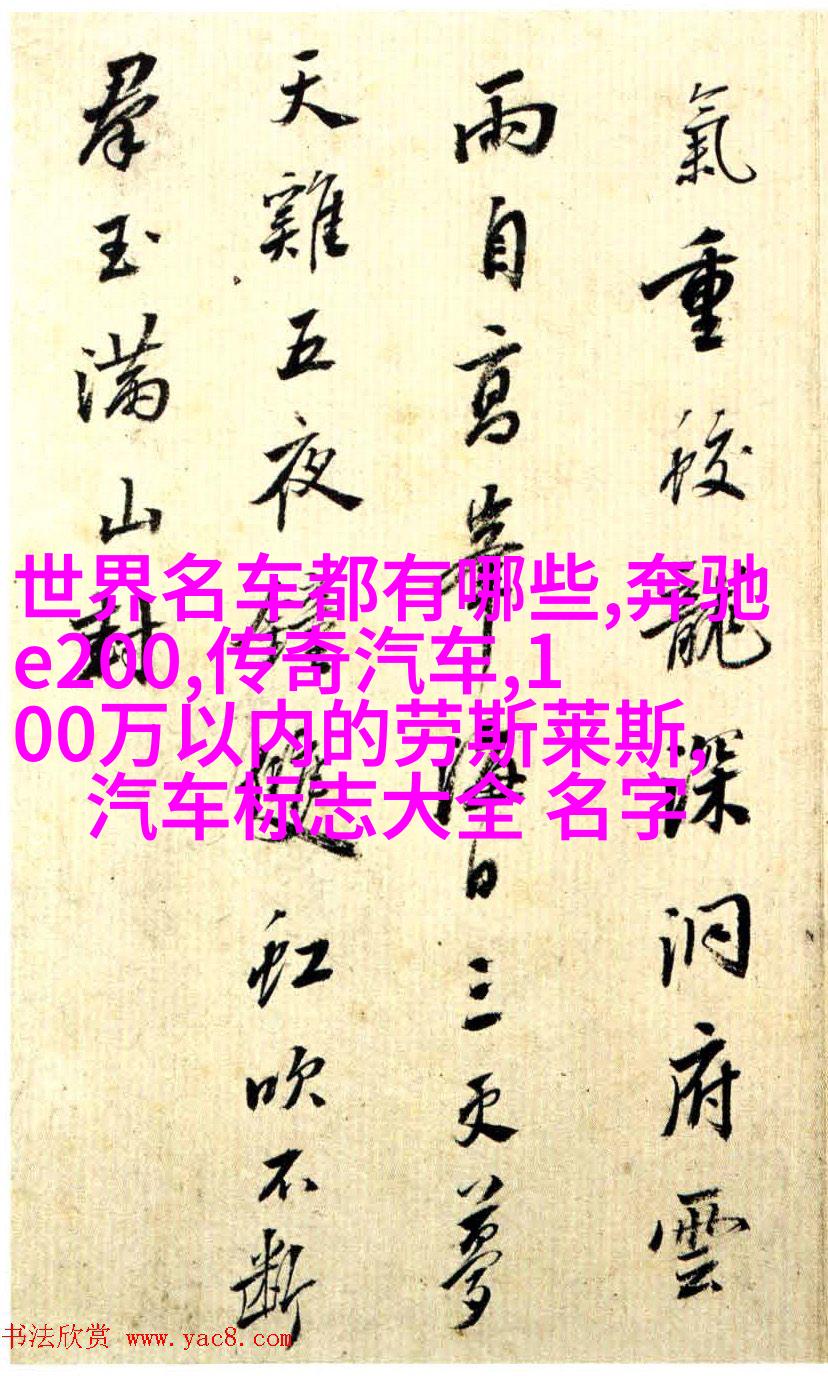 氣重蛟龍深洞府雲
雨自高海日三更夢
天雞五夜雙虹吹不斷
羣玉滿山
世界名车都有哪些,奔驰
e200,传奇汽车,1
00万以内的劳斯莱斯,
汽车标志大全 名字
书法欣赏 www.yac8.com